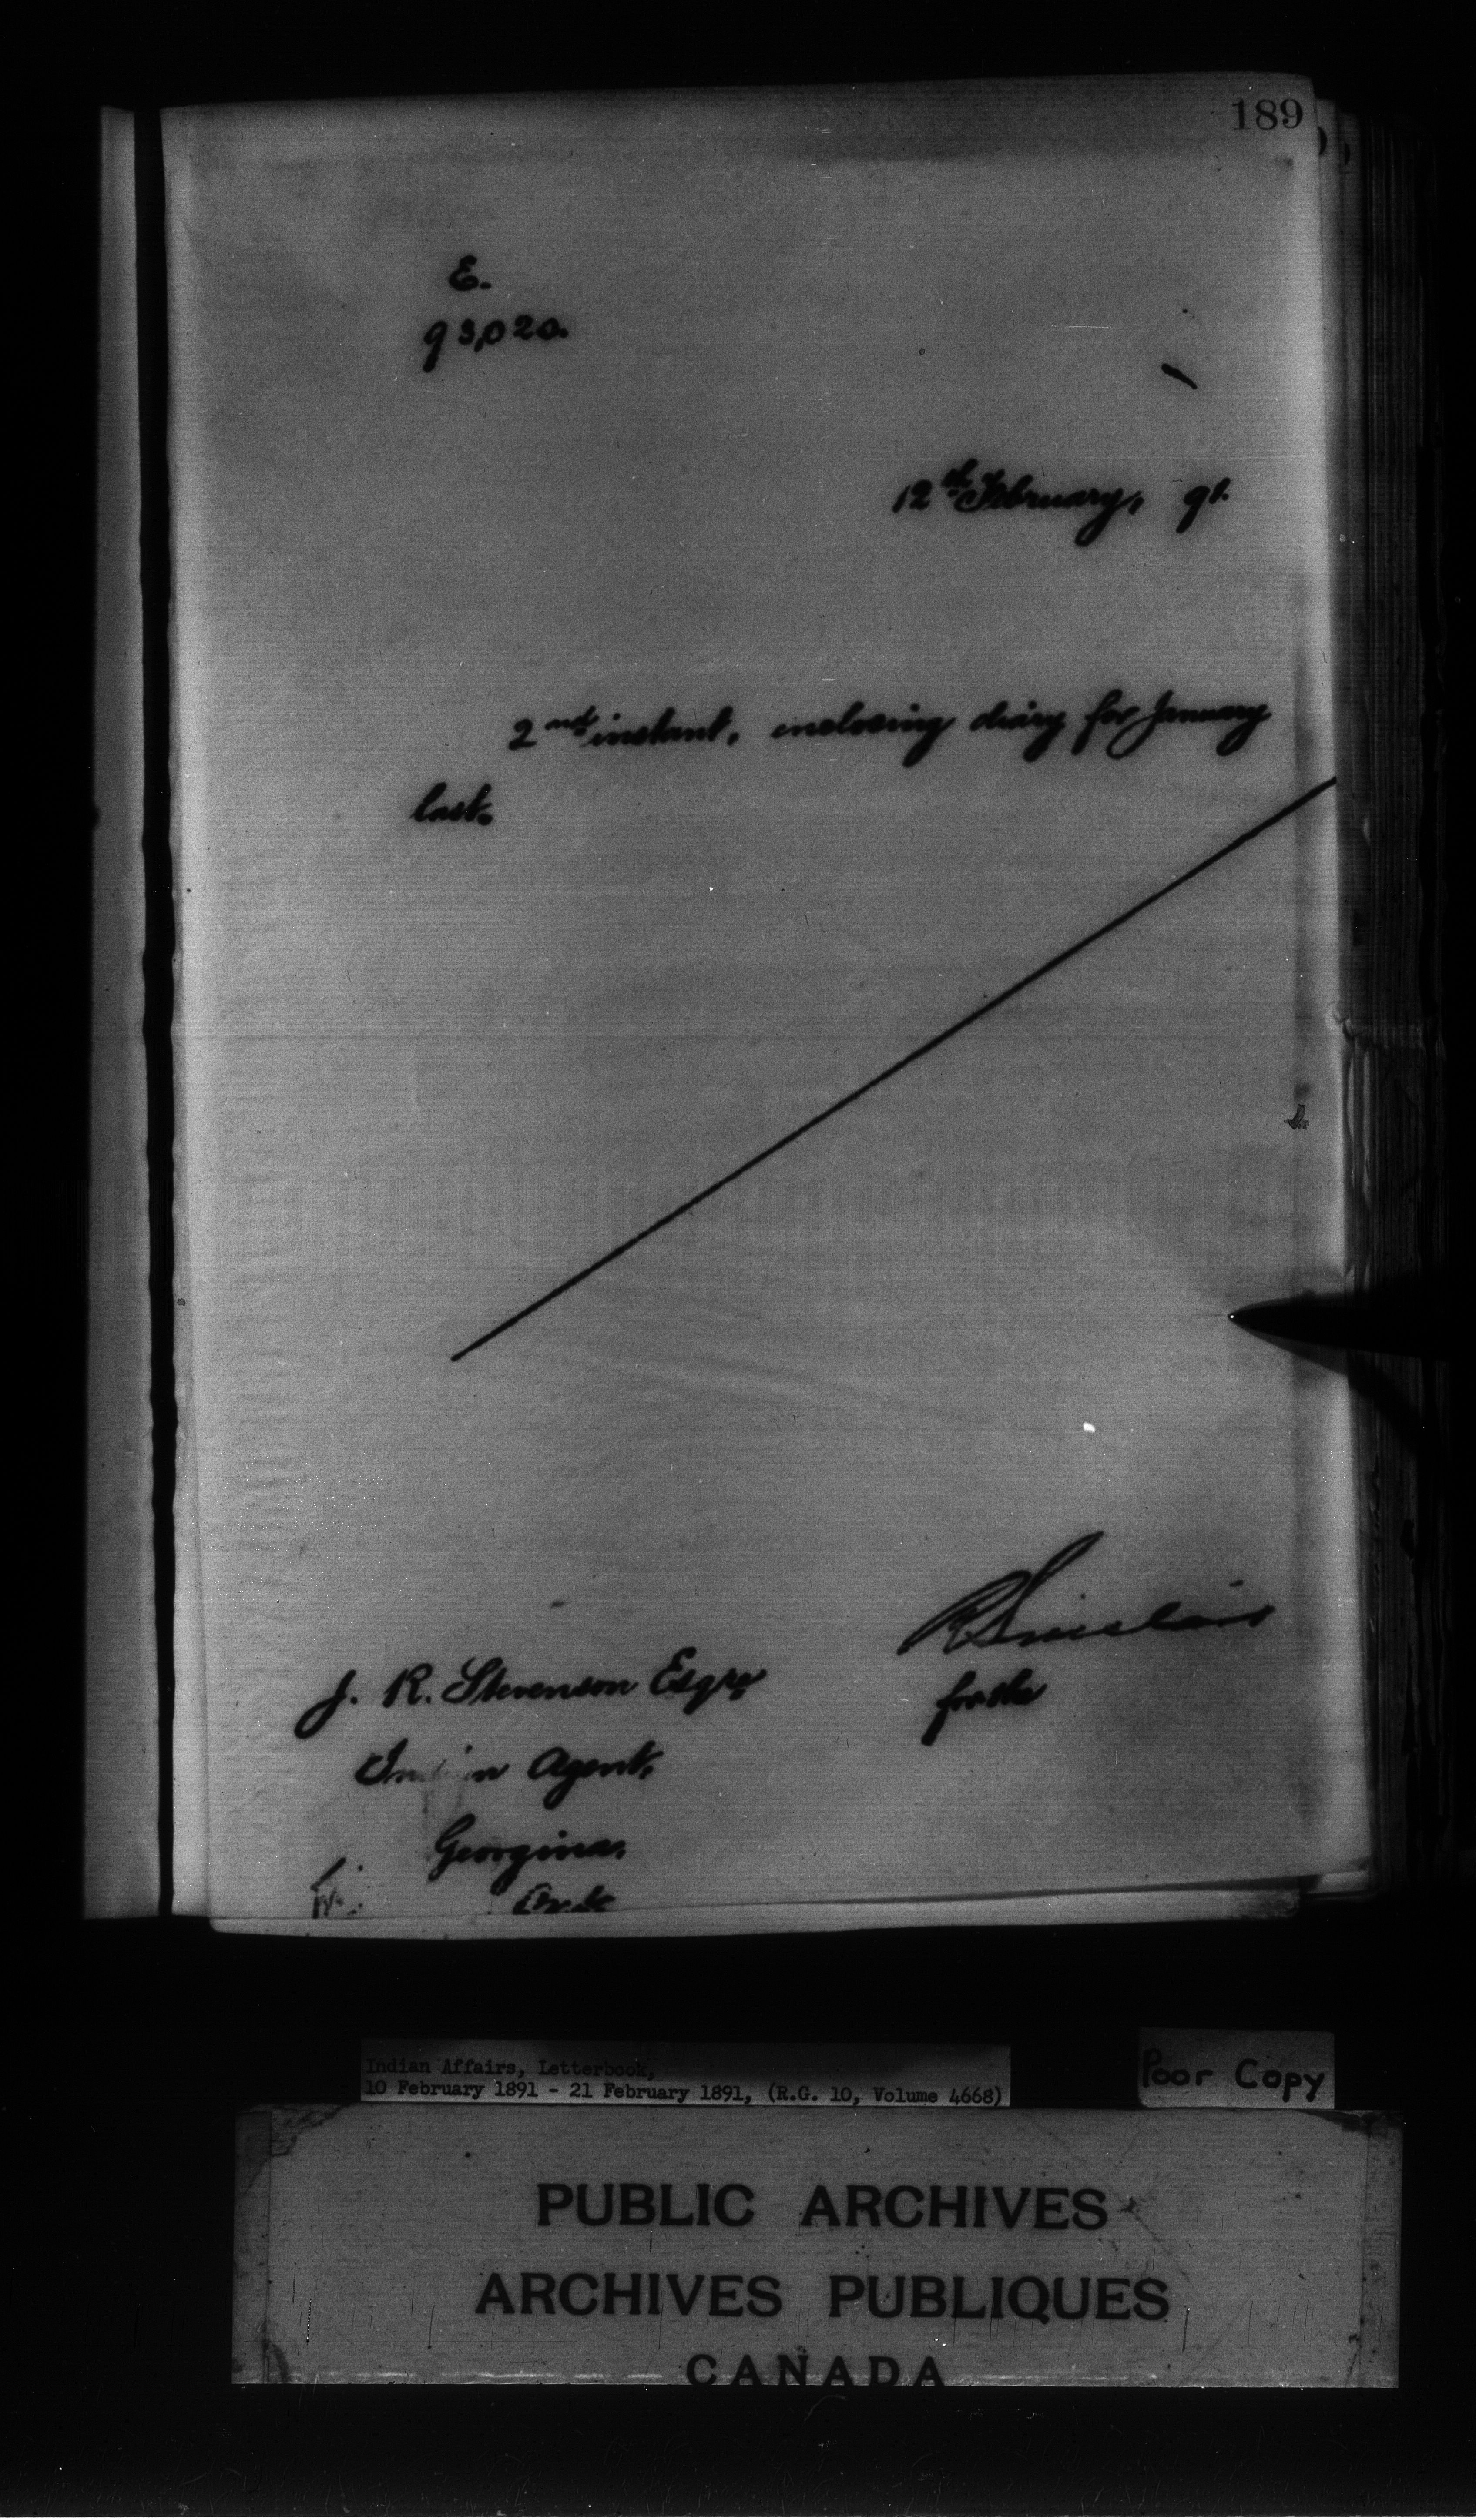 189
E.
93,020.
12th February, 91.
2nd instant, enclosing diary for January
last.
R Sinclair
for the
J. R. Stevenson Esqre
Indian Agent,
Georgina,
Ont.
Indian Affairs, Letterbook,
10 February 1891 - 21 February 1891, (R.G. 10, Volume 4668)
Poor Copy
PUBLIC ARCHIVES
ARCHIVES PUBLIQUES
CANADA